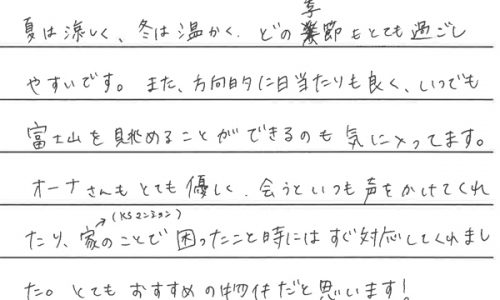 夏は涼しく、冬は温かく、どの季節もとても過ごし
やすいです。また、方向的に日当たりも良く、いつでも
富士山を眺めることができるのも気に入ってます。
オーナさんもとても優しく、会うといつも声をかけてくれ
(KSマンション)
たり、家のことで困ったこと時にはすぐ対応してくれまし
た。とてもおすすめの物件だと思います!